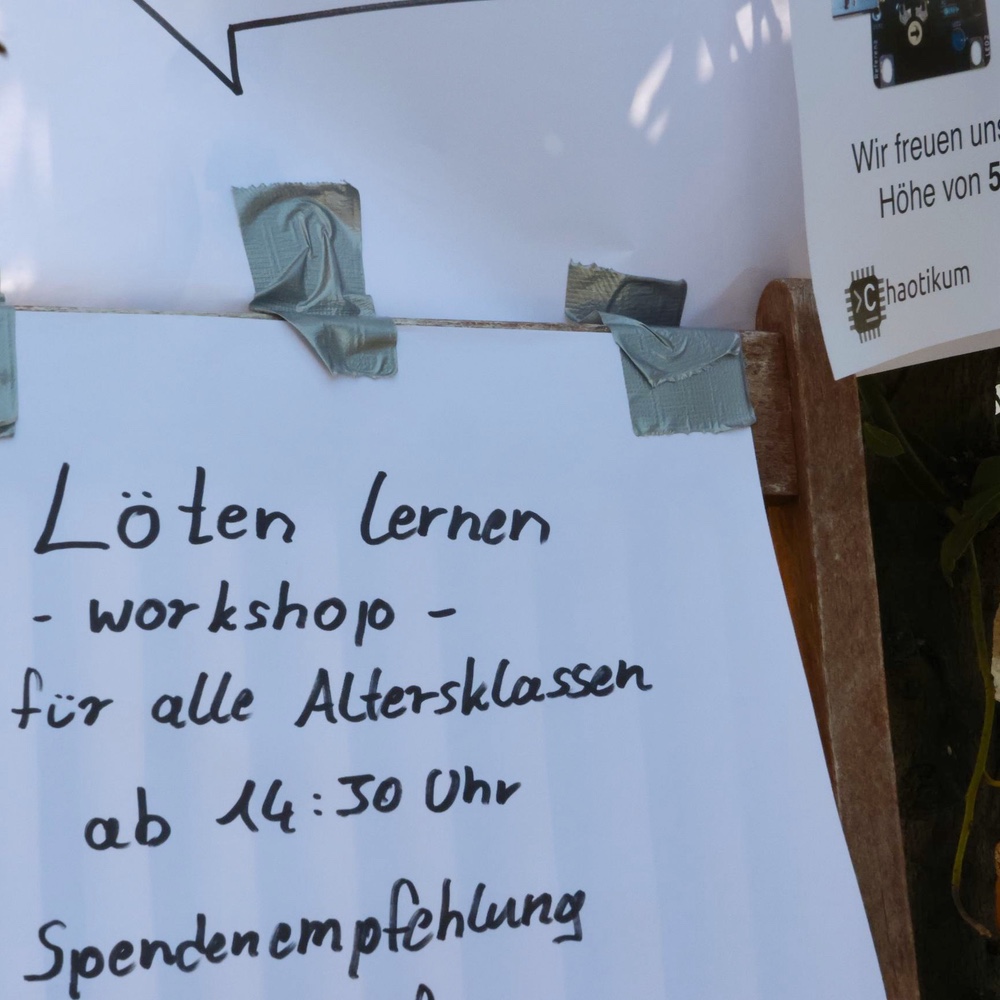 Löten lernen
- workshop -
für alle Altersklassen
ab 14:30 Uhr
Spendenempfehlung
Wir freuen uns
Höhe von 5
chaotikum